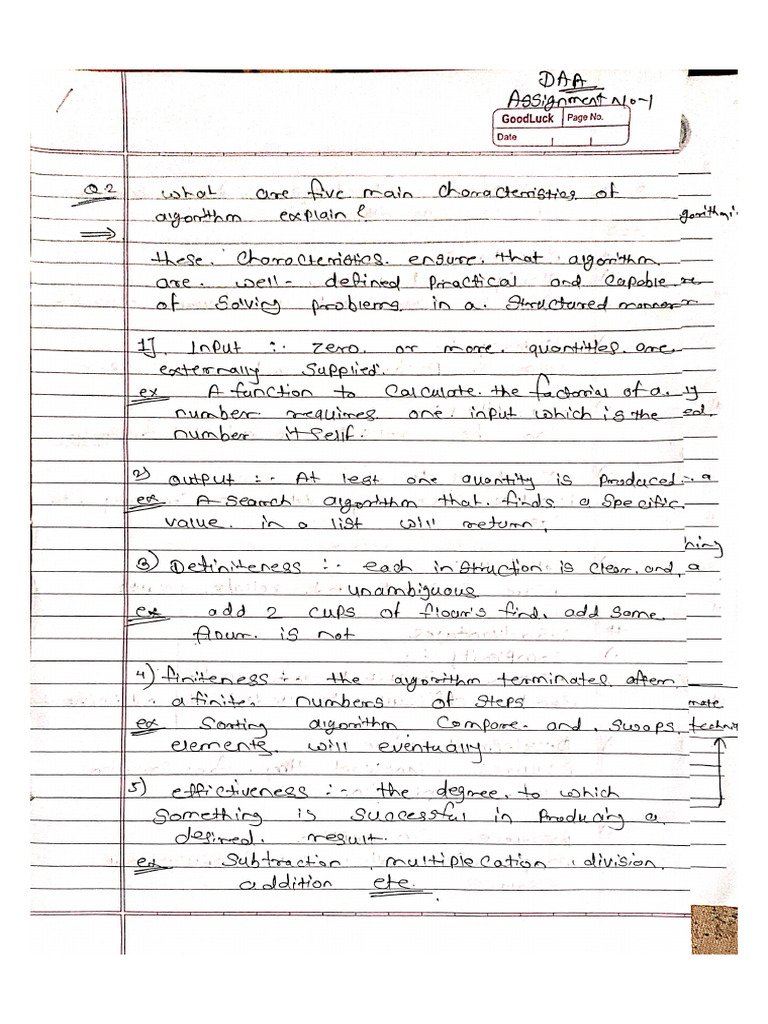 DAA
Assignment No-1
GoodLuck Page No.
Date
Q2 what are five main characteristics of
algorithm explain ?
gorithm
⇒
these characteristics ensure that algorithm
are well- defined practical and capable
of solving problems in a structured manner
1] Input :- zero or more quantities are
externally supplied.
ex A function to calculate the factorial of a
number requires one input which is the
number itself.
2) output :- At lest one quantity is produced
ex A search algorithm that finds a specific
value in a list will return.
3) Definiteness :- each instruction is clear and
unambiguous
ex add 2 cups of flour's find, add some
flour is not
4) finiteness :- the algorithm terminates after
a finite numbers of steps
ex Sorting algorithm compare and swaps
elements will eventually
5) effictiveness :- the degree to which
something is successful in producing a
defired result.
ex subtraction, multiplecation, division,
addition etc.